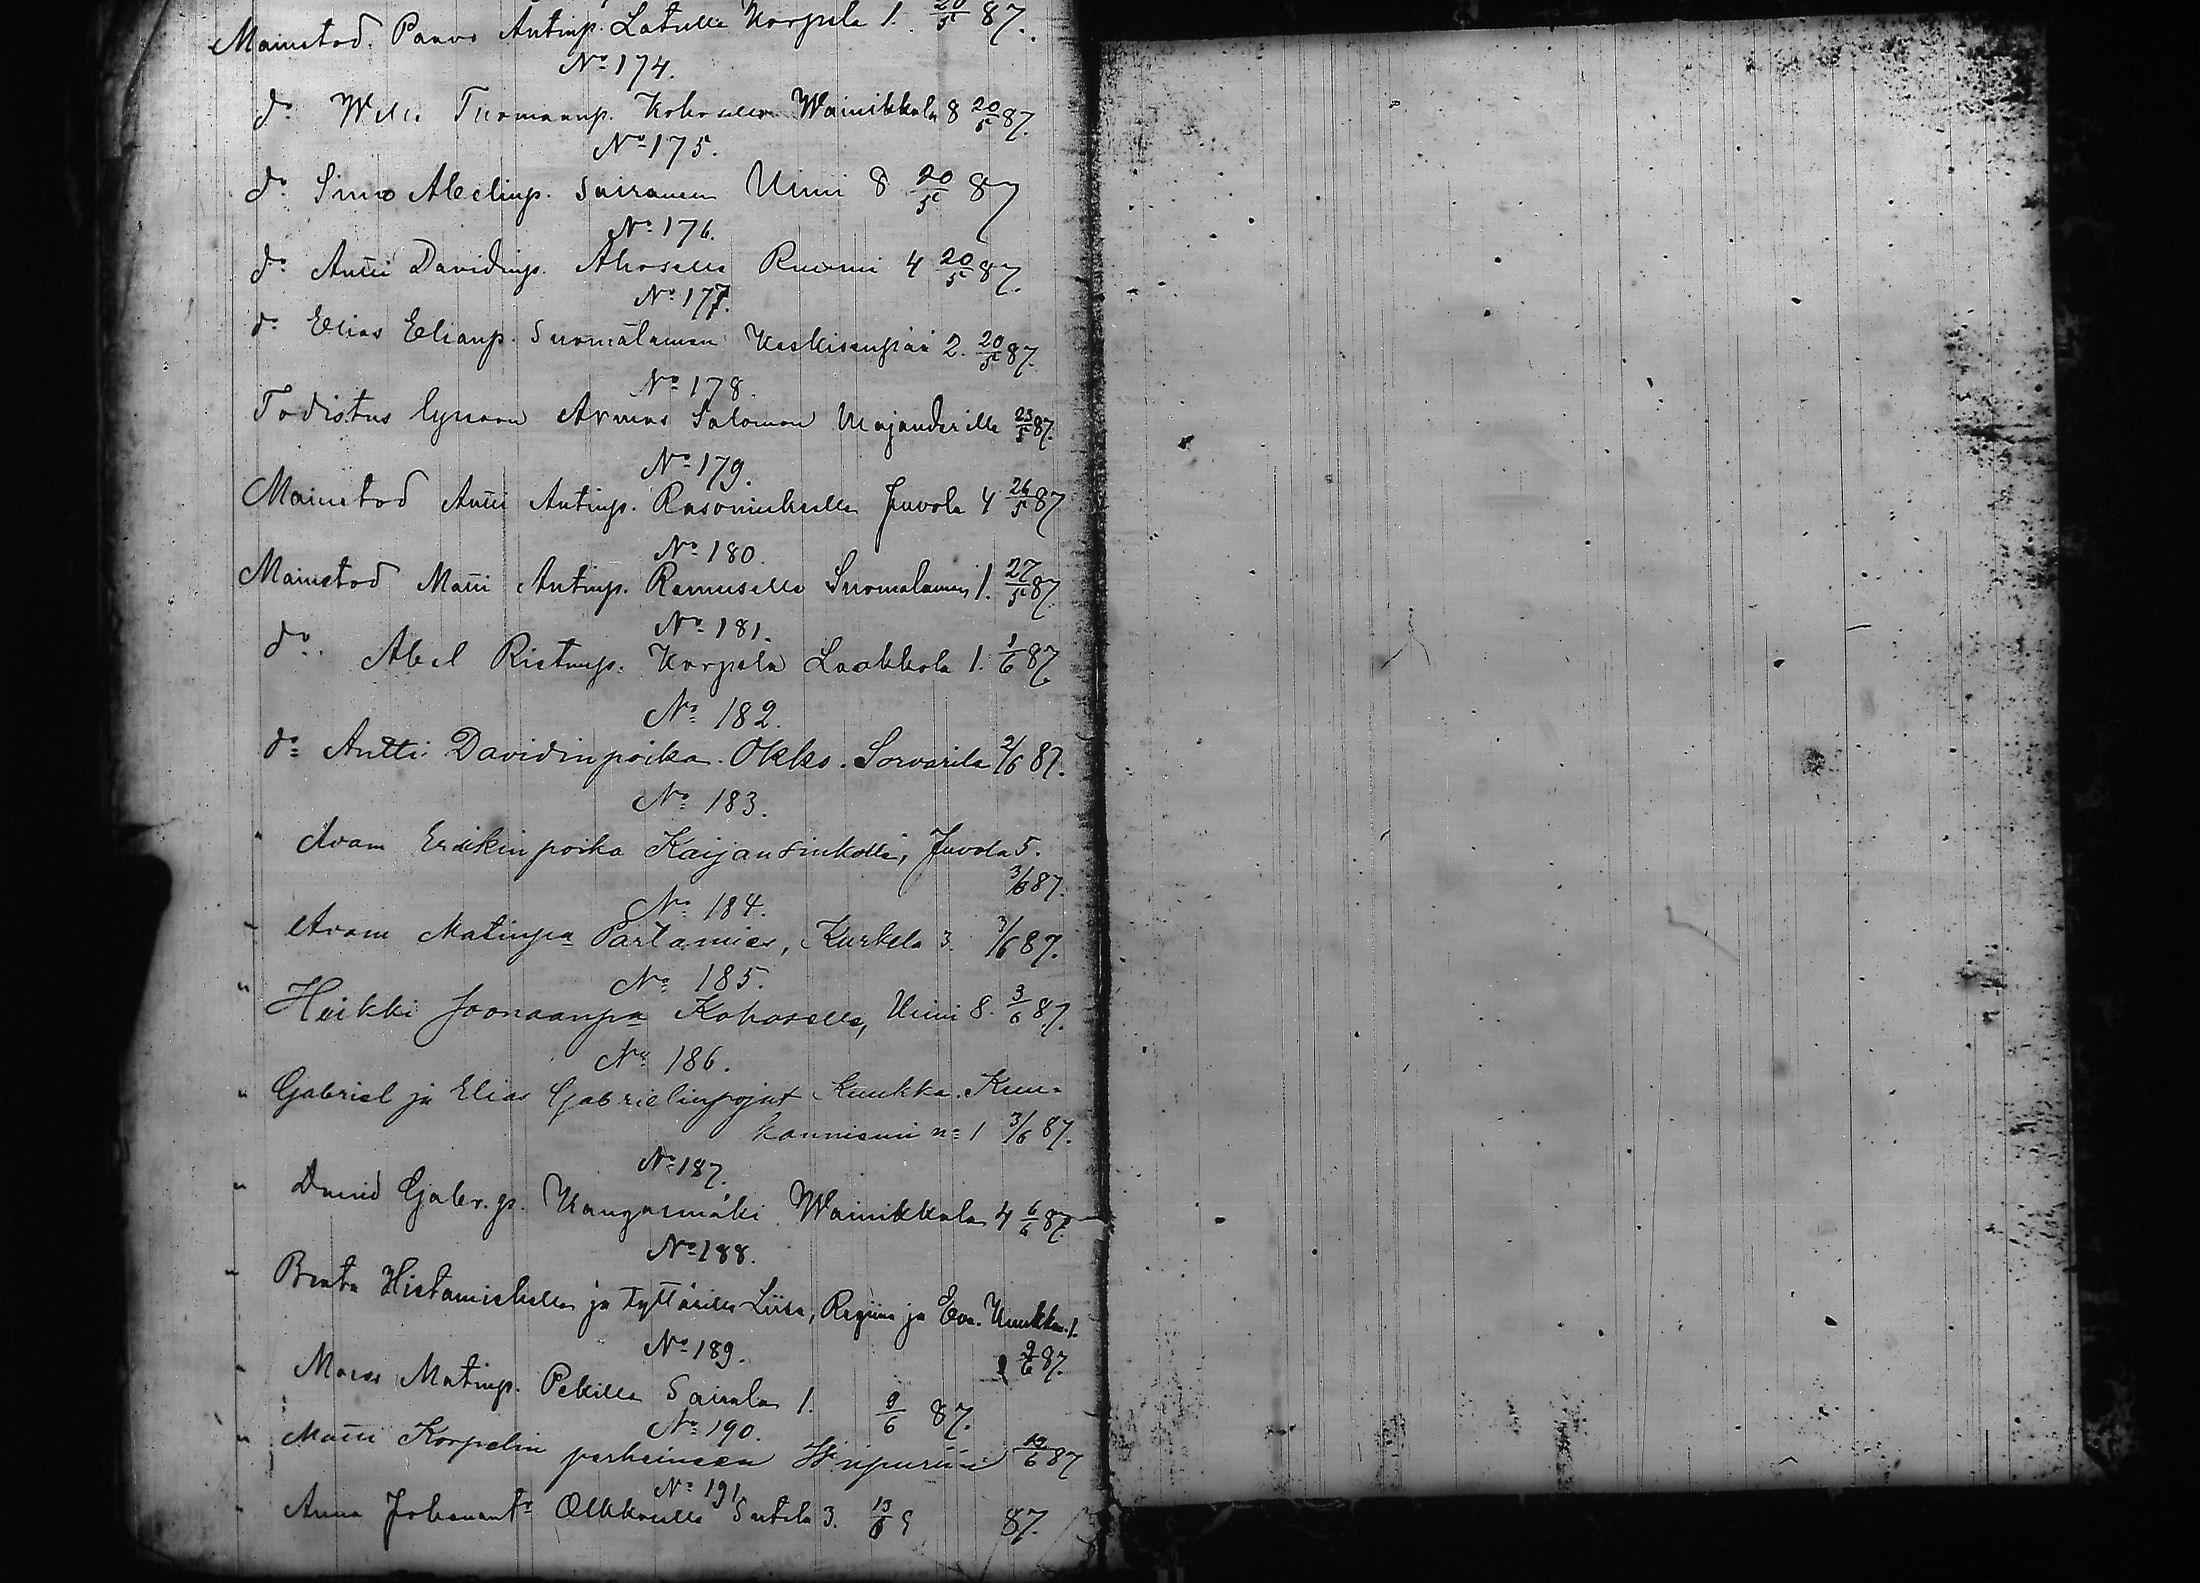 Mainetod. Paavo Antinp. Latulle Korpela 1. 20/5 87.
No 174.
do Tuomaanp. Kohoselle Wainikkala 8 20/5 87.
No 175.
do Simo Abelinp. Sairanen Uimi 8 20/5 87
No 176.
do Antti Davidinp. Ahoselle Ruomi 4 20/5 87.
No 177.
do Elias Elianp. Suomalainen Keskisenpää 2. 20/5 87.
No 178.
Todistus lyseon Armas Salomon Majanderille 23/5 87.
No 179.
Mainetod Antti Antinp. Juvola 4 26/5 87
No 180.
Mainetod Matti Antinp. Ramuselle Suomalainen 1. 27/5 87.
No 181.
do. Abel Ristonp. Korpela Laakkola 1. 1/6 87.
No 182.
do Antti Davidinpoika Okko. Sorvarila 2/6 87.
No 183.
" Aram Erikinpoika Kaijansinkolle, Juvola 5.
3/6 87.
No 184.
" Aram Matinpa Partamies, Kurkela 3. 3/6 87.
No 185.
" Heikki Joonaanpa Kohoselle, Uimi 8. 3/6 87.
No 186.
" Gabriel ja Elias Gabrielinpojat Kuukka. Kuu-
kanniemi no 1 3/6 87.
No 187.
" David Gabr. p. Kangasmäki Wainikkala 4 6/6 87.
No 188.
" Beata Hietamiehelle ja tyttärille Liisa, Regiina ja Eva. Kuukka 1.
9/6 87.
No 189.
" Moses Matinp. Pekille Sairala 1. 9/6 87.
No 190.
" Matti Korpelin perheineen Wiipuriin 10/6 87
No 191
" Anna Juhonant. Ollkkoselle Sutela 3. 13/6 87.